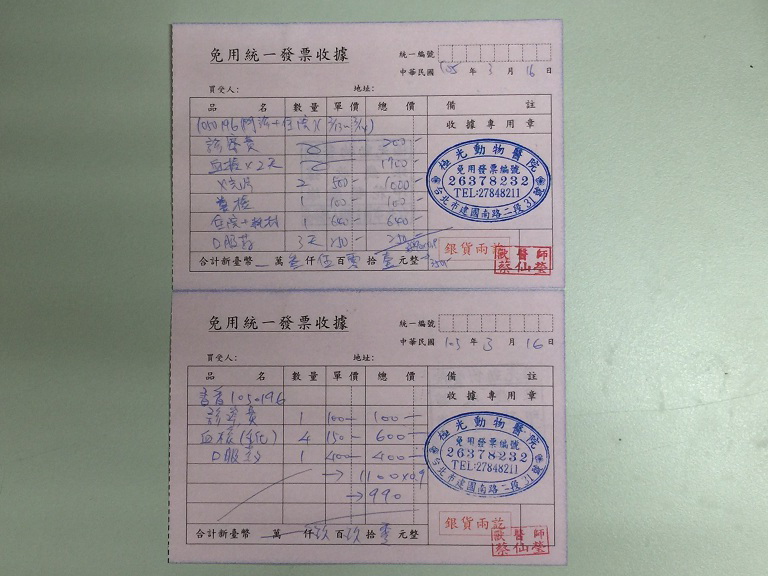 免用統一發票收據
統一編號
中華民國 105 年 3 月 16 日
買受人： 地址：
品 名 數量 單價 總 價 備 註
收據專用章
診察費 200-
血檢×2天 1700
X光 2 500 1000-
1 100 100-
住院+ 1 640 640-
口服药 3天 250 250-
合計新臺幣 萬 叁 仟 伍 百 零 拾 壹 元整
極光動物醫院
免用發票編號
26378232
TEL:27848211
台北市建國南路二段31號
銀貨兩訖
獸醫師
蔡仙瑩
免用統一發票收據
統一編號
中華民國 105 年 3 月 16 日
買受人： 地址：
品 名 數量 單價 總 價 備 註
收據專用章
香香 1050196
診察費 1 100- 100-
血檢(生化) 4 150- 600-
口服药 1 400- 400-
→ 1100×0.9
→990
合計新臺幣 萬 仟 玖 百 玖 拾 元整
極光動物醫院
免用發票編號
26378232
TEL:27848211
台北市建國南路二段31號
銀貨兩訖
獸醫師
蔡仙瑩